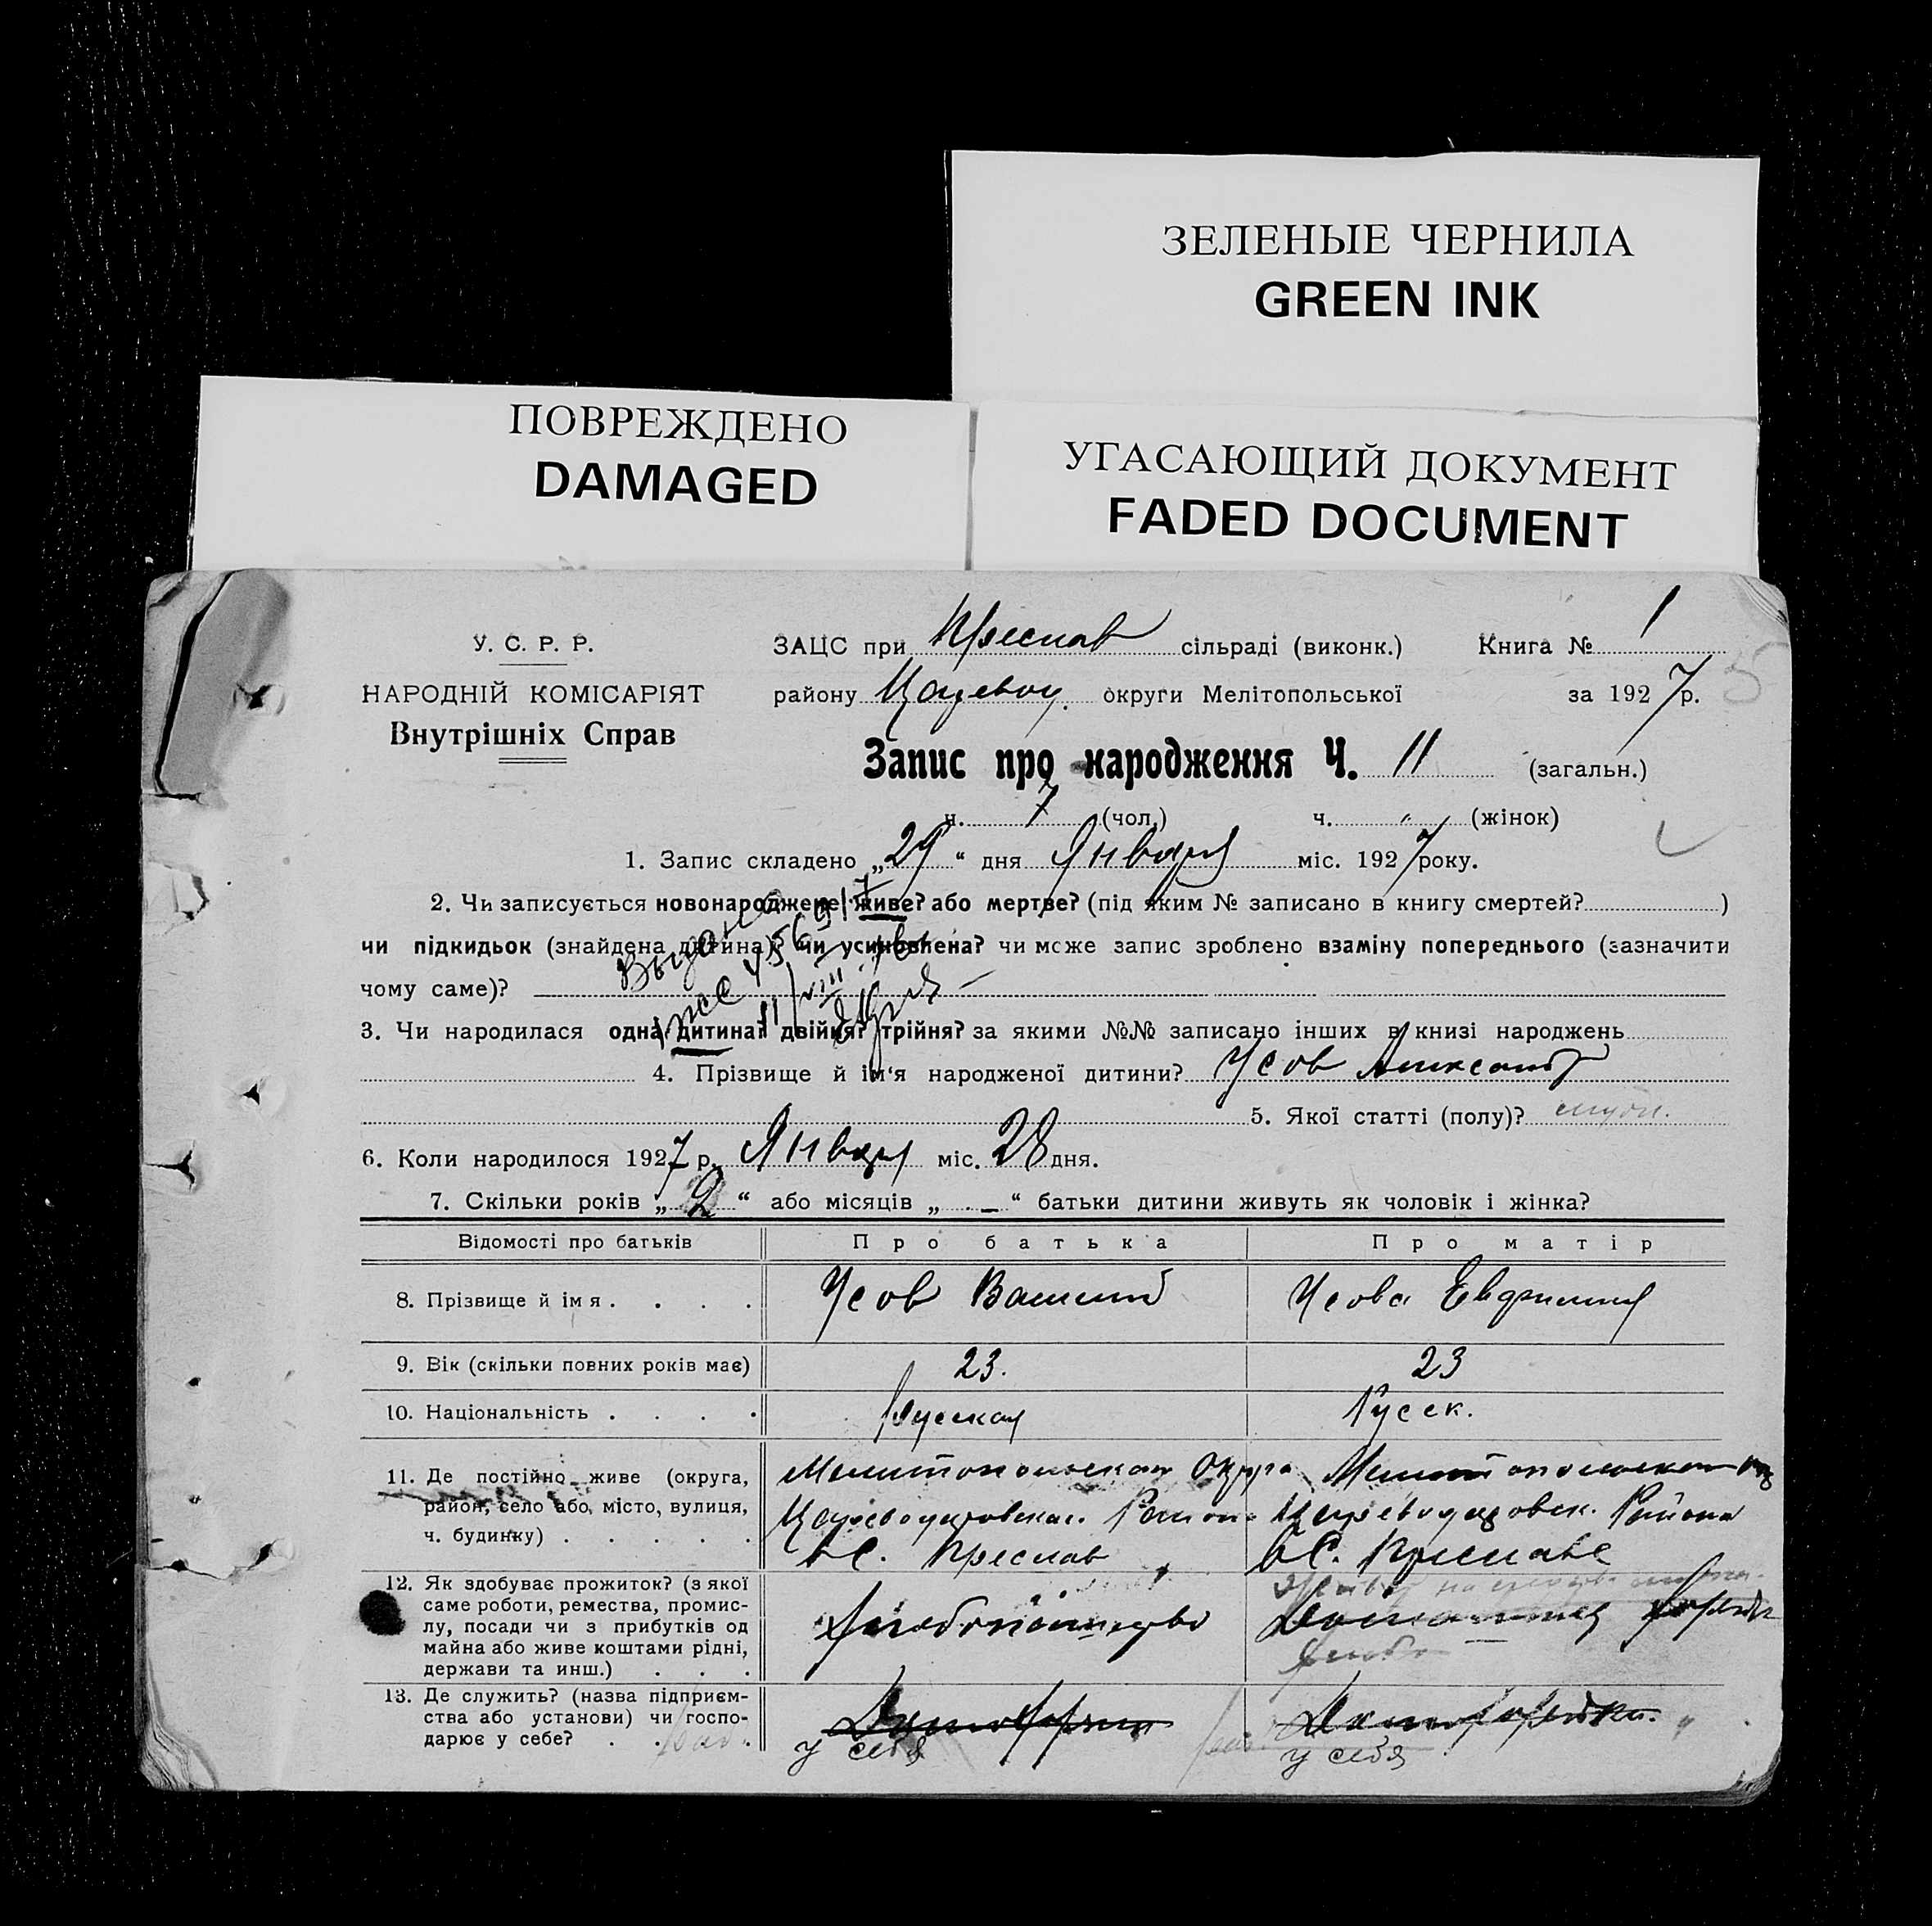 ЗЕЛЕНЫЕ ЧЕРНИЛА
GREEN INK
ПОВРЕЖДЕНО
DAMAGED
УГАСАЮЩИЙ ДОКУМЕНТ
FADED DOCUMENT
У. С. Р. Р.
НАРОДНІЙ КОМІСАРІЯТ
Внутрішніх Справ
ЗАЦС при Преслав сільраді (виконк.) Книга № 1
району округи Мелітопольської за 1927 р.
Запис про народження Ч. 11 (загальн.)
ч. 7 (чол.) ч. " (жінок)
1. Запис складено „29“ дня Января міс. 1927 року.
2. Чи записується новонароджене живе? або мертве? (під яким № записано в книгу смертей? )
чи підкидьок (знайдена дитина)? чи усиновлена? чи може запис зроблено взаміну попереднього (зазначити
чому саме)?
Выдано
3. Чи народилася одна дитина? двійня? трійня? за якими №№ записано інших в книзі народжень
4. Прізвище й ім‘я народженої дитини? Усов Александр
5. Якої статті (полу)?
6. Коли народилося 1927 р. Января міс. 28 дня.
7. Скільки років „2“ або місяців „–“ батьки дитини живуть як чоловік і жінка?
Відомості про батьків Про батька Про матір
8. Прізвище й імя . . . . Усов Василий Усова Евдокия
9. Вік (скільки повних років має) 23. 23
10. Національність . . . . Русская Русск.
11. Де постійно живе (округа,
район, село або, місто, вулиця,
ч. будинку) . . . . .
Мелитопольская Округа
Района
в С. Преслав
Мелитопольская
Района
в С. Преславе
12. Як здобуває прожиток? (з якої
саме роботи, ремества, промис-
лу, посади чи з прибутків од
майна або живе коштами рідні,
держави та инш.) . . .
Хлебопашество
13. Де служить? (назва підприєм-
ства або установи) чи госпо-
дарює у себе? . . .
у себя
у себя